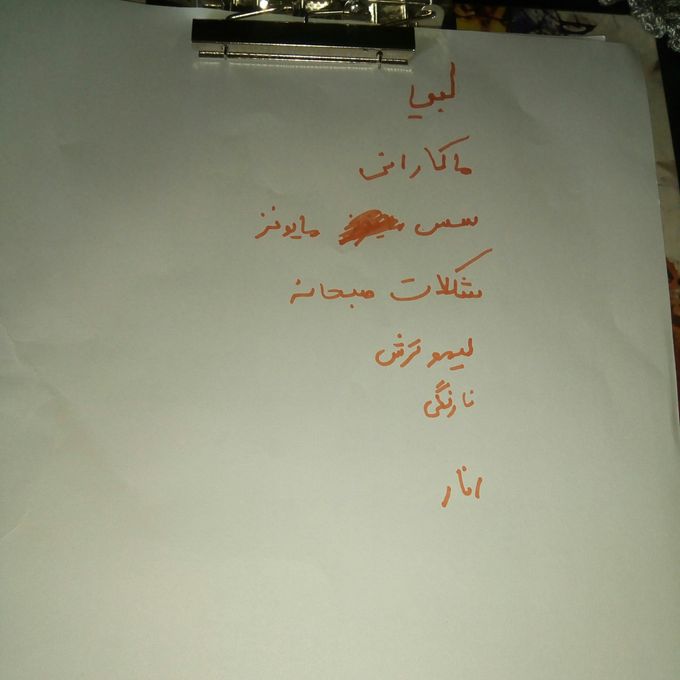 لبویا
ماکارانی
سس مایونز
شکلات صبحانه
لیمو ترش
نارنگی
انار